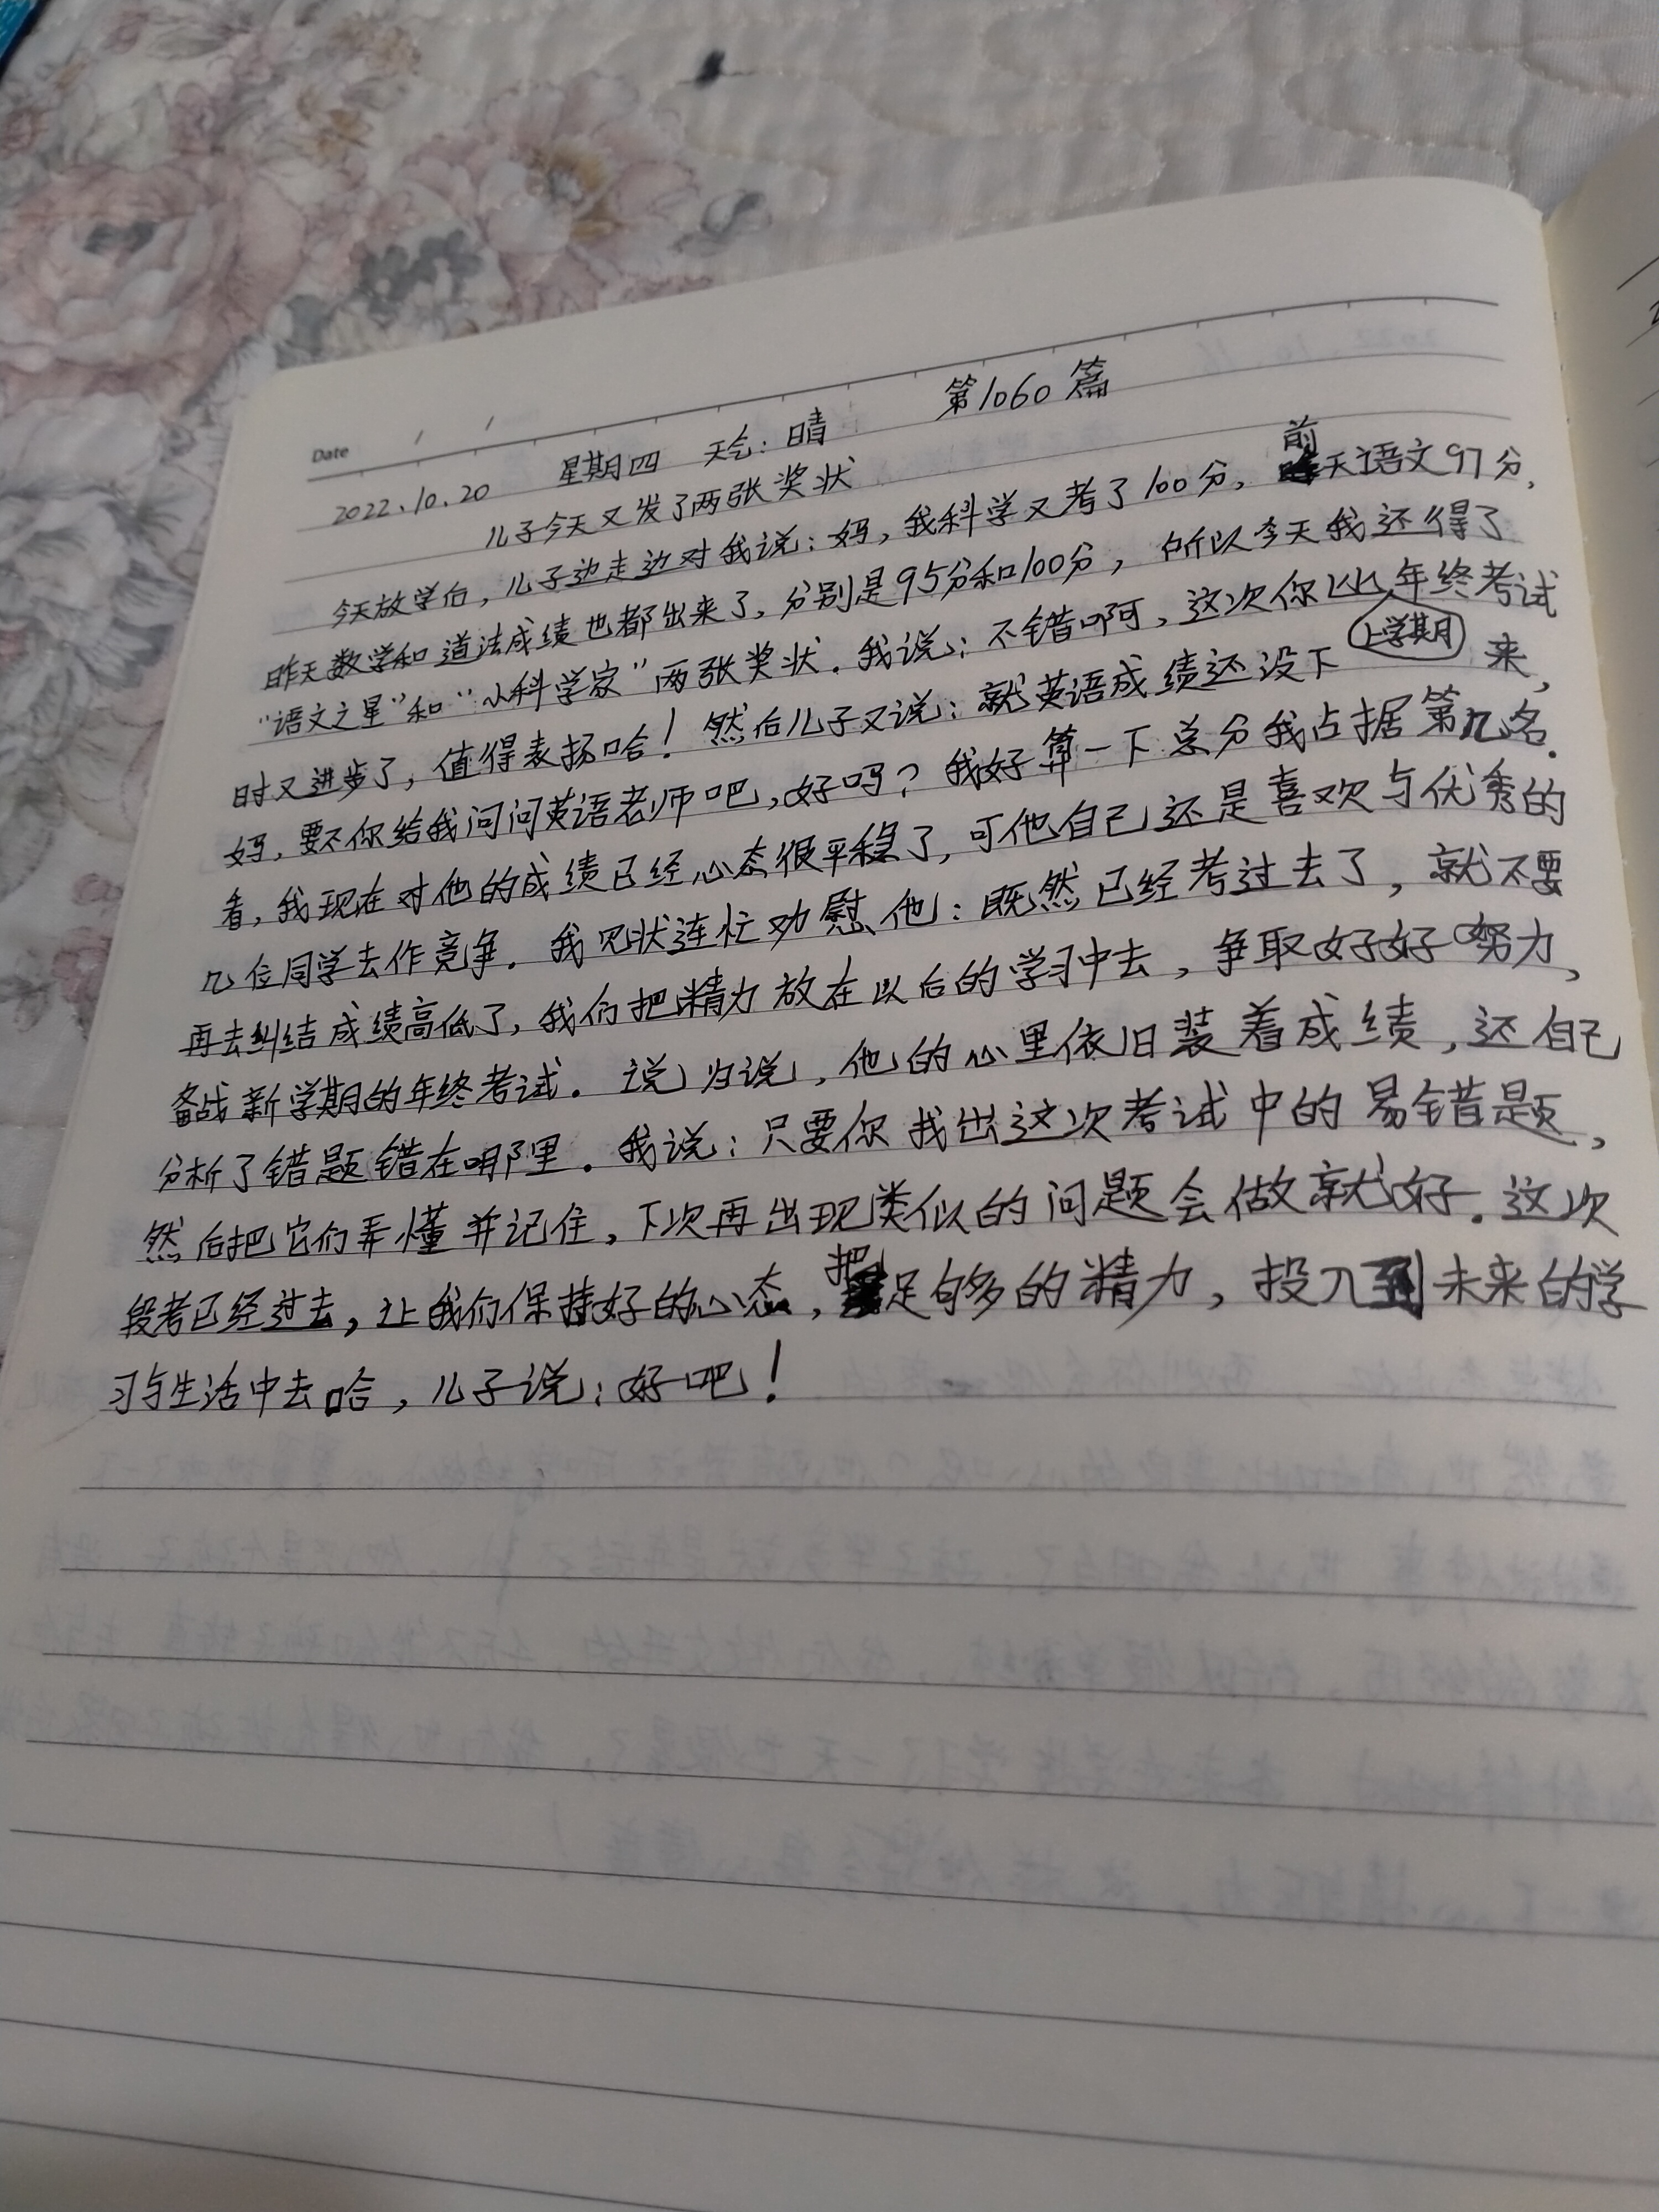 第1060篇
Date / /
2022.10.20 星期四 天气：晴
儿子今天又发了两张奖状
前
今天放学后，儿子边走边对我说：妈，我科学又考了100分，天语文97分，
昨天数学和道法成绩也都出来了，分别是95分和100分，所以今天我还得了
“语文之星”和“小科学家”两张奖状。我说：不错啊，这次你比年终考试
上学期
时又进步了，值得表扬哈！然后儿子又说：就英语成绩还没下来，
妈，要不你给我问问英语老师吧，好吗？我好算一下总分我占据第几名。
看，我现在对他的成绩已经心态很平稳了，可他自己还是喜欢与优秀的
几位同学去作竞争。我见状连忙劝慰他：既然已经考过去了，就不要
再去纠结成绩高低了，我们把精力放在以后的学习中去，争取好好努力，
备战新学期的年终考试。说归说，他的心里依旧装着成绩，还自己
分析了错题错在哪里。我说：只要你找出这次考试中的易错题，
然后把它们弄懂并记住，下次再出现类似的问题会做就好。这次
把
段考已经过去，让我们保持好的心态，足够的精力，投入到未来的学
习与生活中去哈，儿子说：好吧！